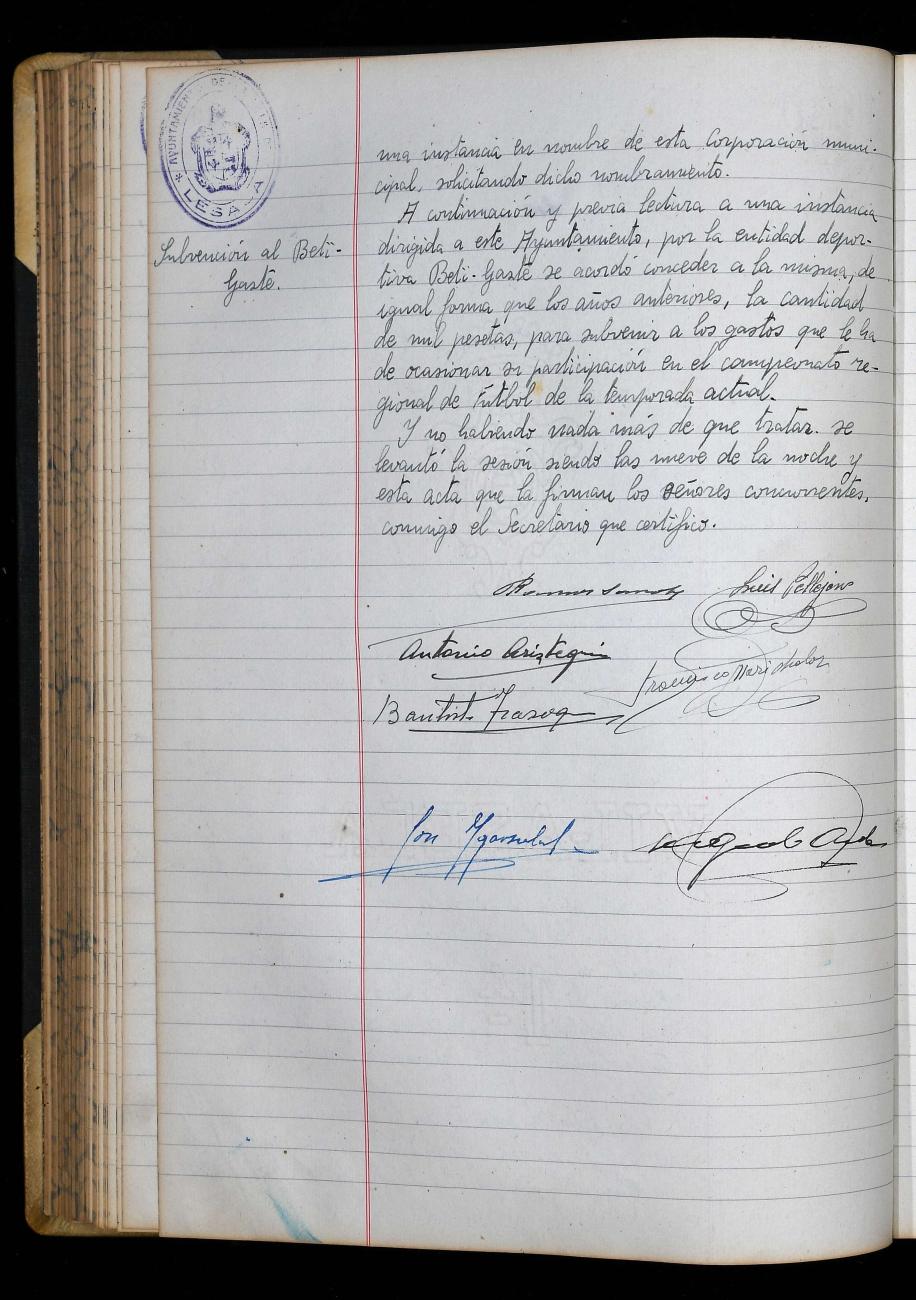 AYUNTAMIENTO DE
LESACA
Subvención al Beti-
Gazte.
una instancia en nombre de esta Corporación muni-
cipal, solicitando dicho nombramiento.
A continuación y previa lectura a una instancia
dirigida a este Ayuntamiento, por la entidad depor-
tiva Beti-Gazte se acordó conceder a la misma, de
igual forma que los años anteriores, la cantidad
de mil pesetas, para subvenir a los gastos que le ha
de ocasionar su participación en el campeonato re-
gional de Fútbol de la temporada actual.
Y no habiendo nada más de que tratar. se
levantó la sesión siendo las nueve de la noche y
esta acta que la firman los señores concurrentes,
conmigo el Secretario que certifico.
Luis Pellejero
Antonio Aristegui
Francisco Marichalar
Bautista